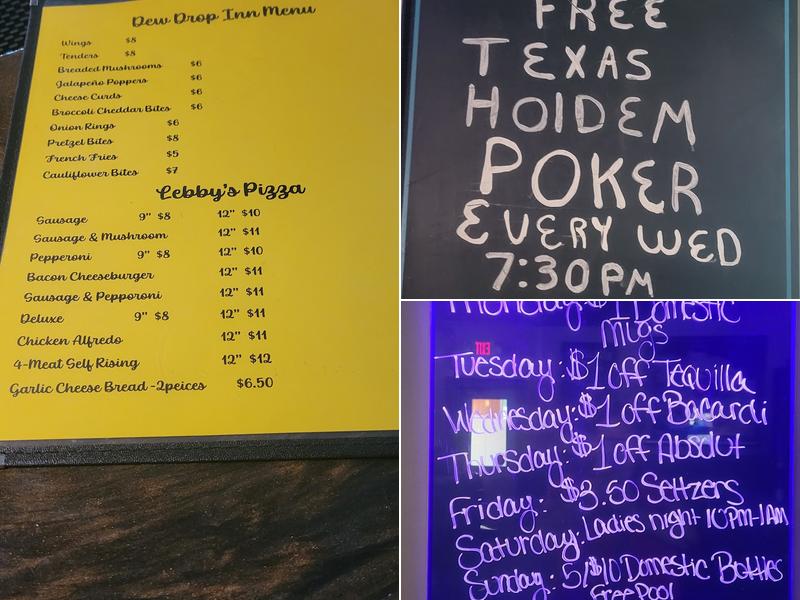 Dew Drop Inn Menu
Wings $8
Tenders $8
Breaded Mushrooms $6
Jalapeño Poppers $6
Cheese Curds $6
Broccoli Cheddar Bites $6
Onion Rings $6
Pretzel Bites $8
French Fries $5
Cauliflower Bites $7
Lebby's Pizza
Sausage 9" $8 12" $10
Sausage & Mushroom 12" $11
Pepperoni 9" $8 12" $10
Bacon Cheeseburger 12" $11
Sausage & Pepporoni 12" $11
Deluxe 9" $8 12" $11
Chicken Alfredo 12" $11
4-Meat Self Rising 12" $12
Garlic Cheese Bread -2peices $6.50
FREE
TEXAS
HOlDEM
POKER
EVERY WED
7:30PM
Monday: $1 Domestic
Mugs
EXIT
Tuesday: $1 off Tequilla
Wednesday: $1 off Bacardi
Thursday: $1 off Absolut
Friday: $3.50 Seltzers
Saturday: Ladies night 10PM-1AM
Sunday: 5/$10 Domestic Bottles
Free Pool